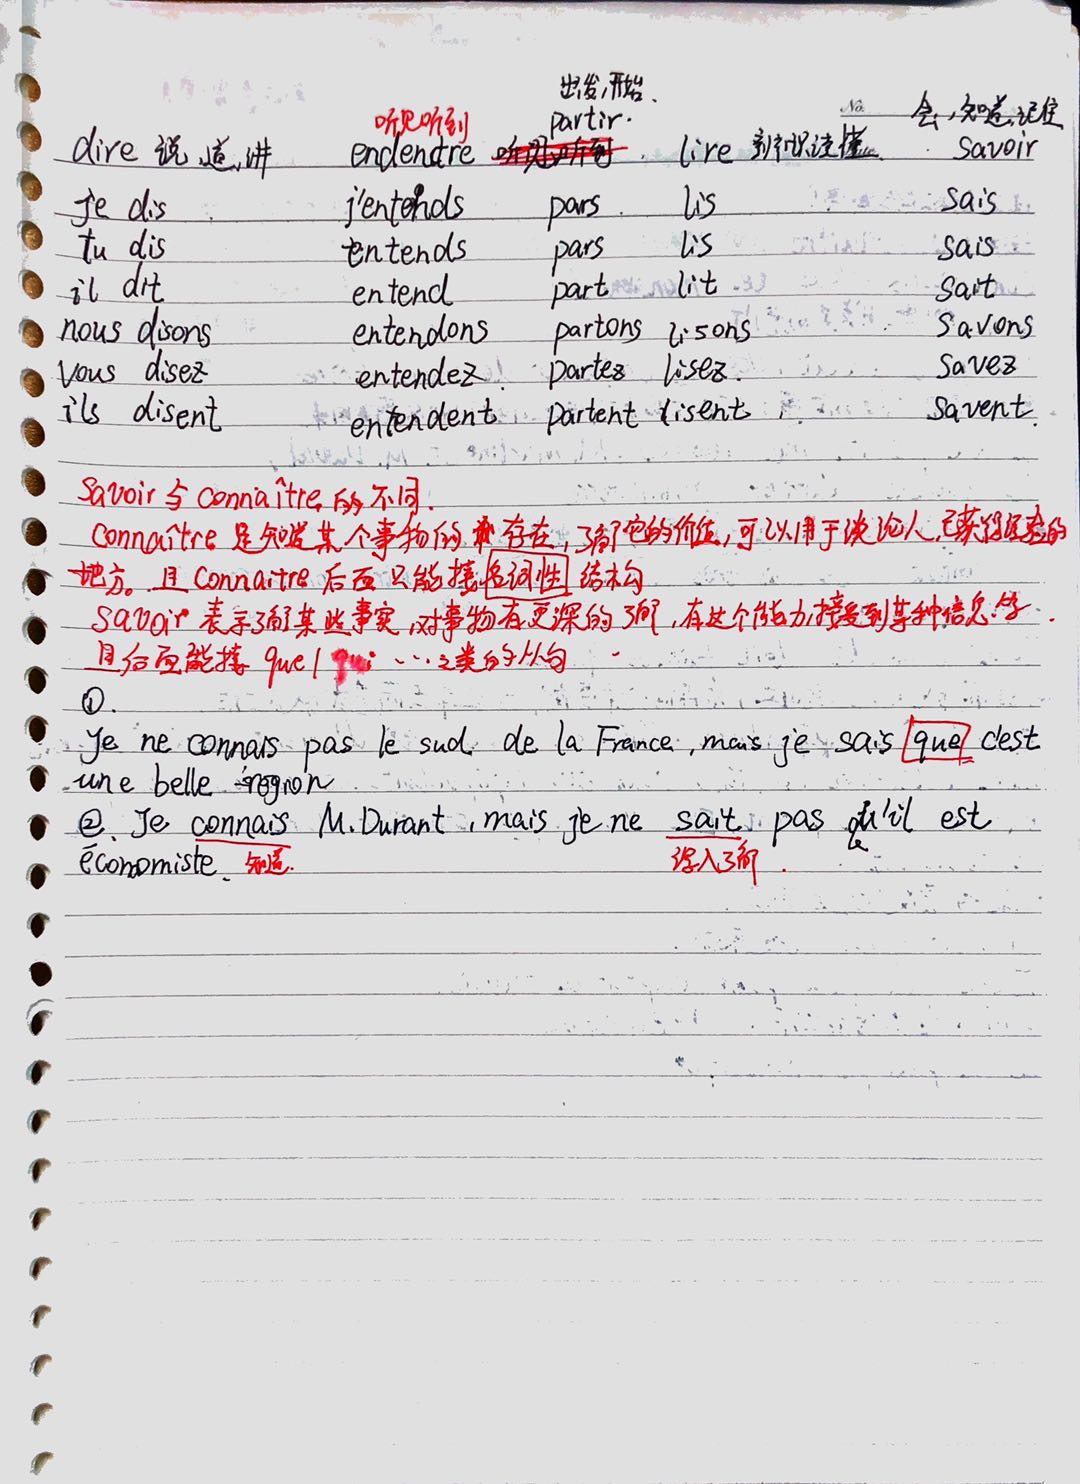 出发,开始.
No.
会,知道,记住
听见听到
partir.
dire 说,道,讲 endendre 听见听到 lire 读懂 savoir
je dis j'entends pars lis sais
tu dis entends pars lis sais
il dit entend part lit sait
nous disons entendons partons lisons savons
vous disez entendez partez lisez savez
ils disent entendent partent lisent savent
savoir 与 connaître 的不同.
connaître 是知道某个事物的存在,了解它的价值,可以用于谈论人,已获得经验的
地方。且 connaitre 后面只能接名词性结构
savoir 表示了解某些事实,对事物有更深的了解,有这个能力,接受到某种信息.
且后面能接 que/qui …之类的从句
①.
Je ne connais pas le sud de la France, mais je sais que c'est
une belle région
②. Je connais M. Durant, mais je ne sait pas qu'il est
économiste. 知道.
深入了解.